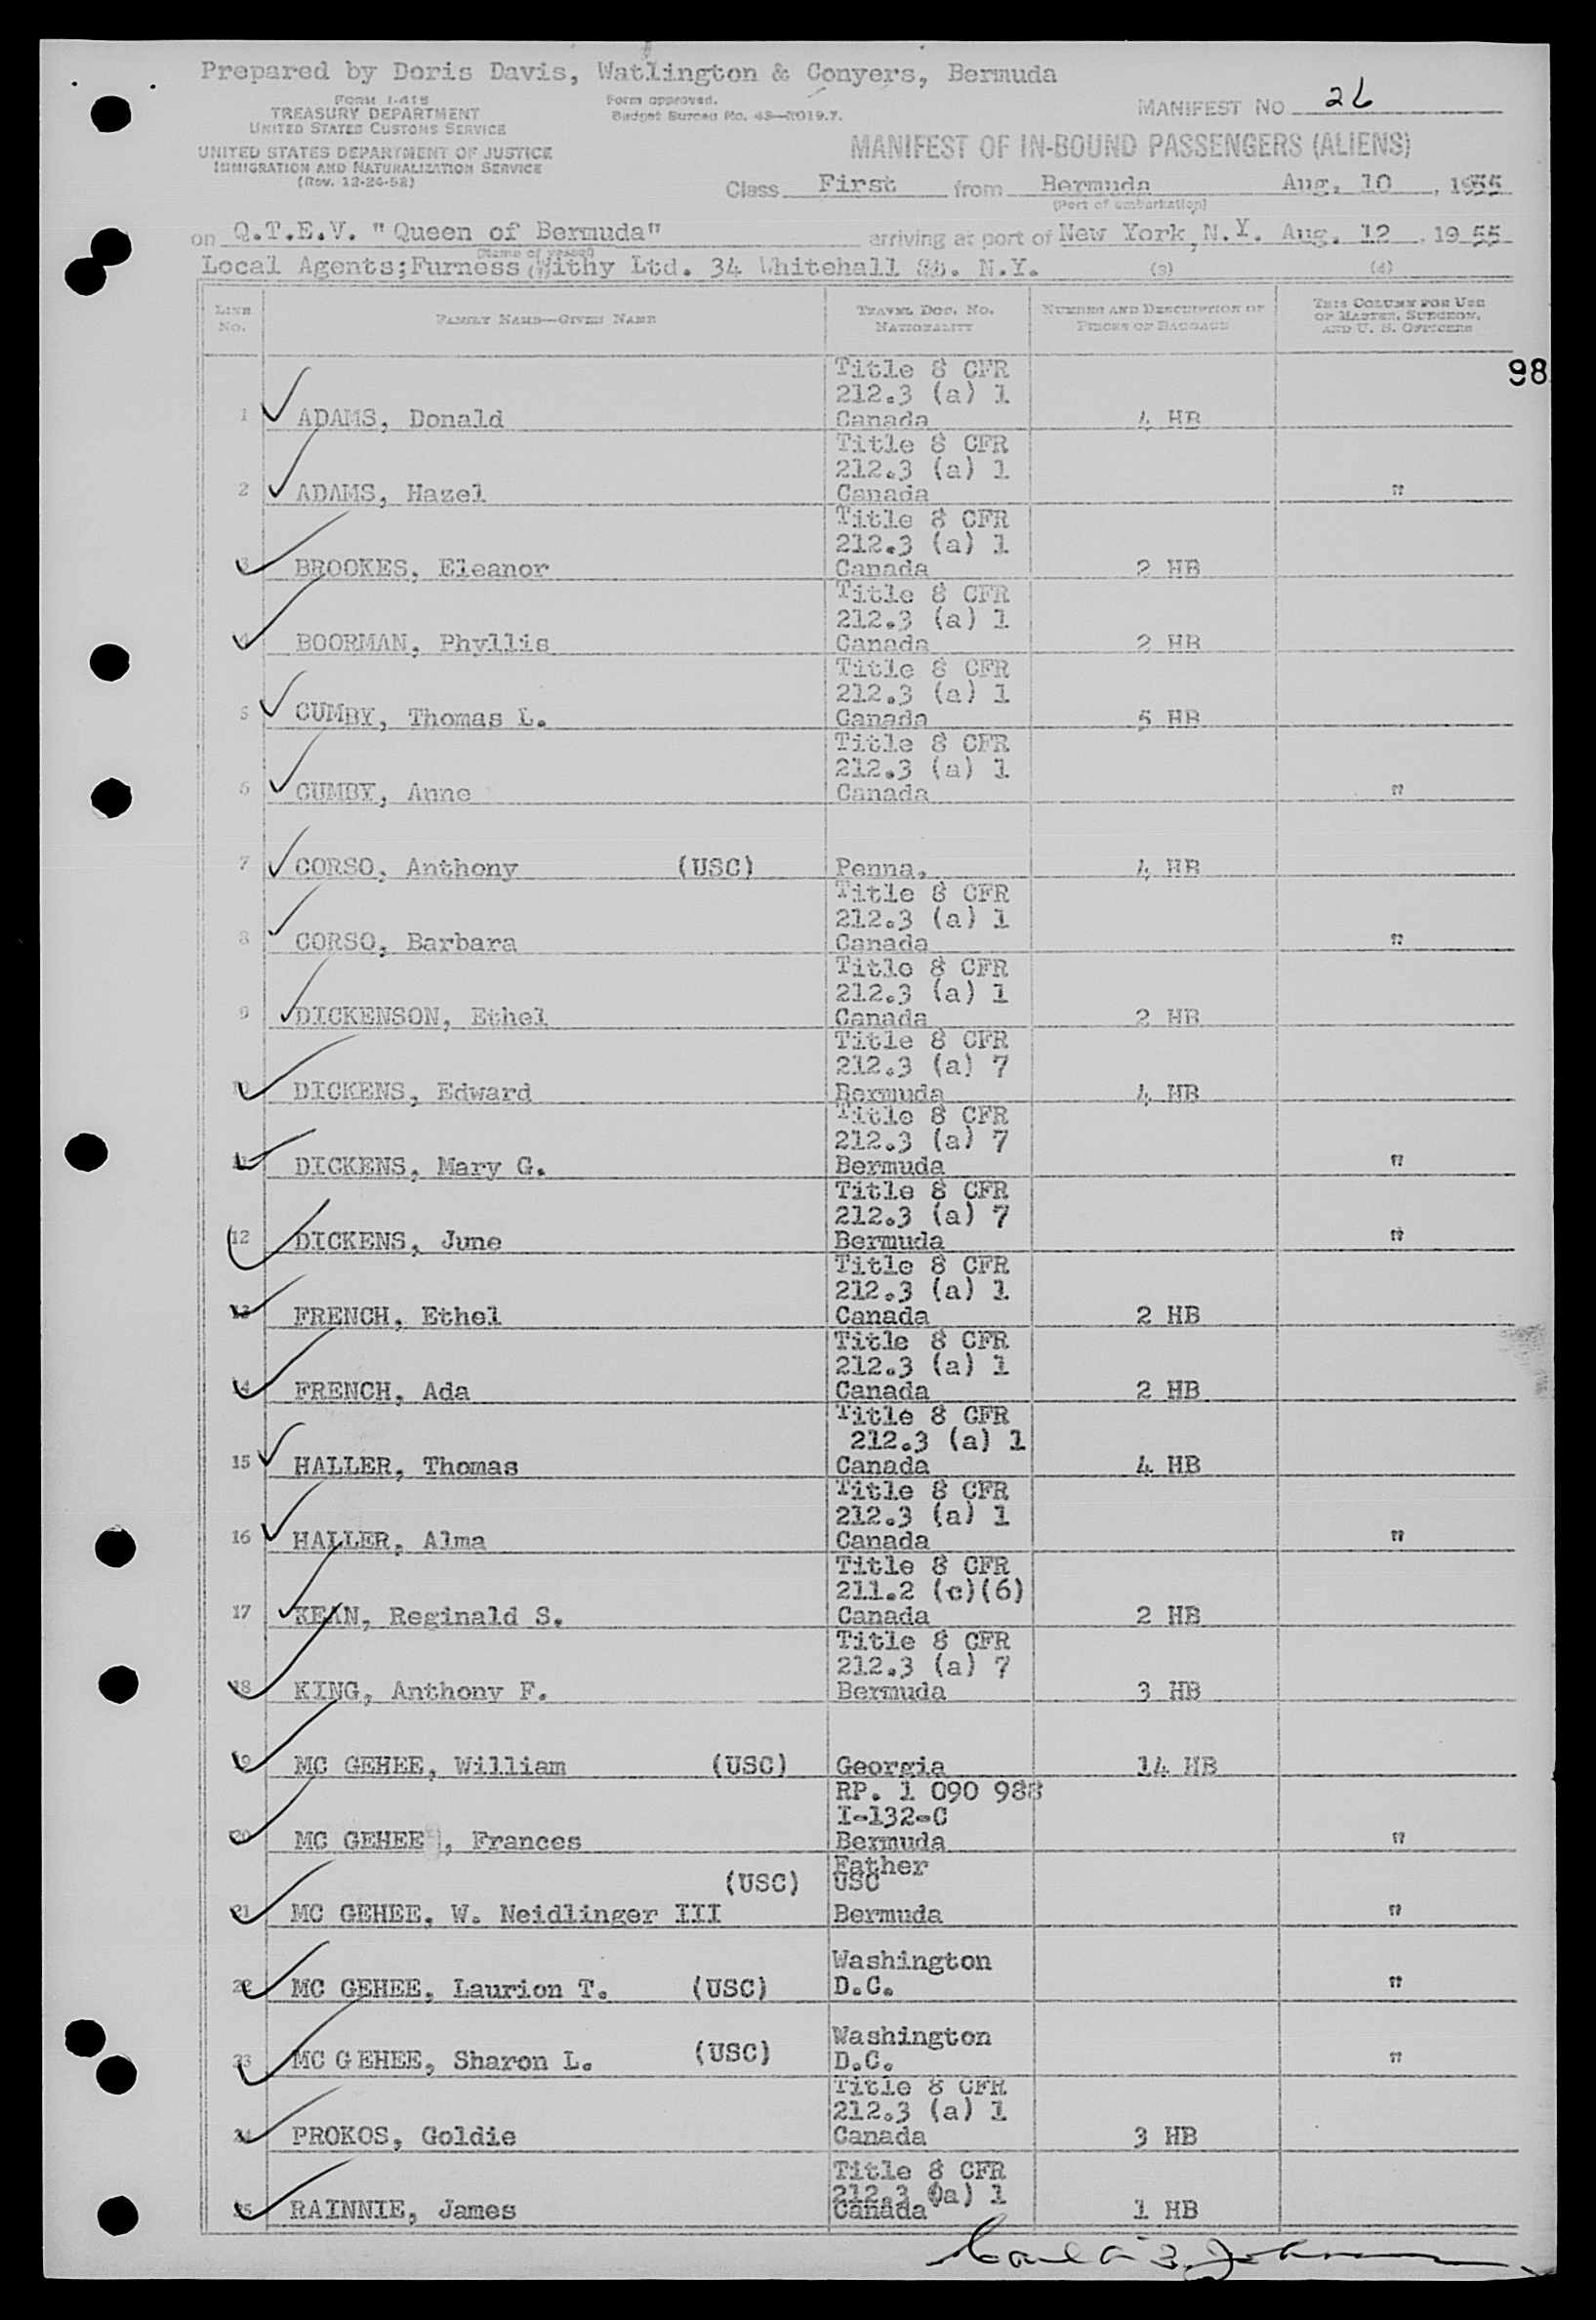 Prepared by Doris Davis, Watlington & Conyers, Bermuda
Form I-415
TREASURY DEPARTMENT
UNITED STATES CUSTOMS SERVICE
UNITED STATES DEPARTMENT OF JUSTICE
IMMIGRATION AND NATURALIZATION SERVICE
(Rev. 12-26-52)
Form approved.
Budget Bureau No. 43—R019.7.
MANIFEST NO 26
MANIFEST OF IN-BOUND PASSENGERS (ALIENS)
Class First from Bermuda Aug. 10, 1955
(Port of embarkation)
on Q.T.E.V. "Queen of Bermuda" arriving at port of New York, N.Y. Aug. 12, 1955
(Name of vessel)
Local Agents; Furness Withy Ltd. 34 Whitehall St. N.Y. (3) (4)
LINE No. FAMILY NAME—GIVEN NAME TRAVEL DOC. NO. NATIONALITY NUMBER AND DESCRIPTION OF PIECES OF BAGGAGE THIS COLUMN FOR USE OF MASTER, SURGEON, AND U. S. OFFICERS
98
Title 8 CFR
212.3 (a) 1
1 ADAMS, Donald Canada 4 HB
Title 8 CFR
212.3 (a) 1
2 ADAMS, Hazel Canada "
Title 8 CFR
212.3 (a) 1
3 BROOKES, Eleanor Canada 2 HB
Title 8 CFR
212.3 (a) 1
4 BOORMAN, Phyllis Canada 2 HB
Title 8 CFR
212.3 (a) 1
5 CUMBY, Thomas L. Canada 5 HB
Title 8 CFR
212.3 (a) 1
6 CUMBY, Anne Canada "
7 CORSO, Anthony (USC) Penna. 4 HB
Title 8 CFR
212.3 (a) 1
8 CORSO, Barbara Canada "
Title 8 CFR
212.3 (a) 1
9 DICKENSON, Ethel Canada 2 HB
Title 8 CFR
212.3 (a) 7
10 DICKENS, Edward Bermuda 4 HB
Title 8 CFR
212.3 (a) 7
11 DICKENS, Mary G. Bermuda "
Title 8 CFR
212.3 (a) 7
12 DICKENS, June Bermuda "
Title 8 CFR
212.3 (a) 1
13 FRENCH, Ethel Canada 2 HB
Title 8 CFR
212.3 (a) 1
14 FRENCH, Ada Canada 2 HB
Title 8 CFR
212.3 (a) 1
15 HALLER, Thomas Canada 4 HB
Title 8 CFR
212.3 (a) 1
16 HALLER, Alma Canada "
Title 8 CFR
211.2 (c)(6)
17 KEAN, Reginald S. Canada 2 HB
Title 8 CFR
212.3 (a) 7
18 KING, Anthony F. Bermuda 3 HB
19 MC GEHEE, William (USC) Georgia 14 HB
RP. 1 090 988
I-132-C
20 MC GEHEE, Frances Bermuda "
Father
(USC) USC
21 MC GEHEE, W. Neidlinger III Bermuda "
Washington
22 MC GEHEE, Laurion T. (USC) D.C. "
Washington
23 MC GEHEE, Sharon L. (USC) D.C. "
Title 8 CFR
212.3 (a) 1
24 PROKOS, Goldie Canada 3 HB
Title 8 CFR
212.3 (a) 1
25 RAINNIE, James Canada 1 HB